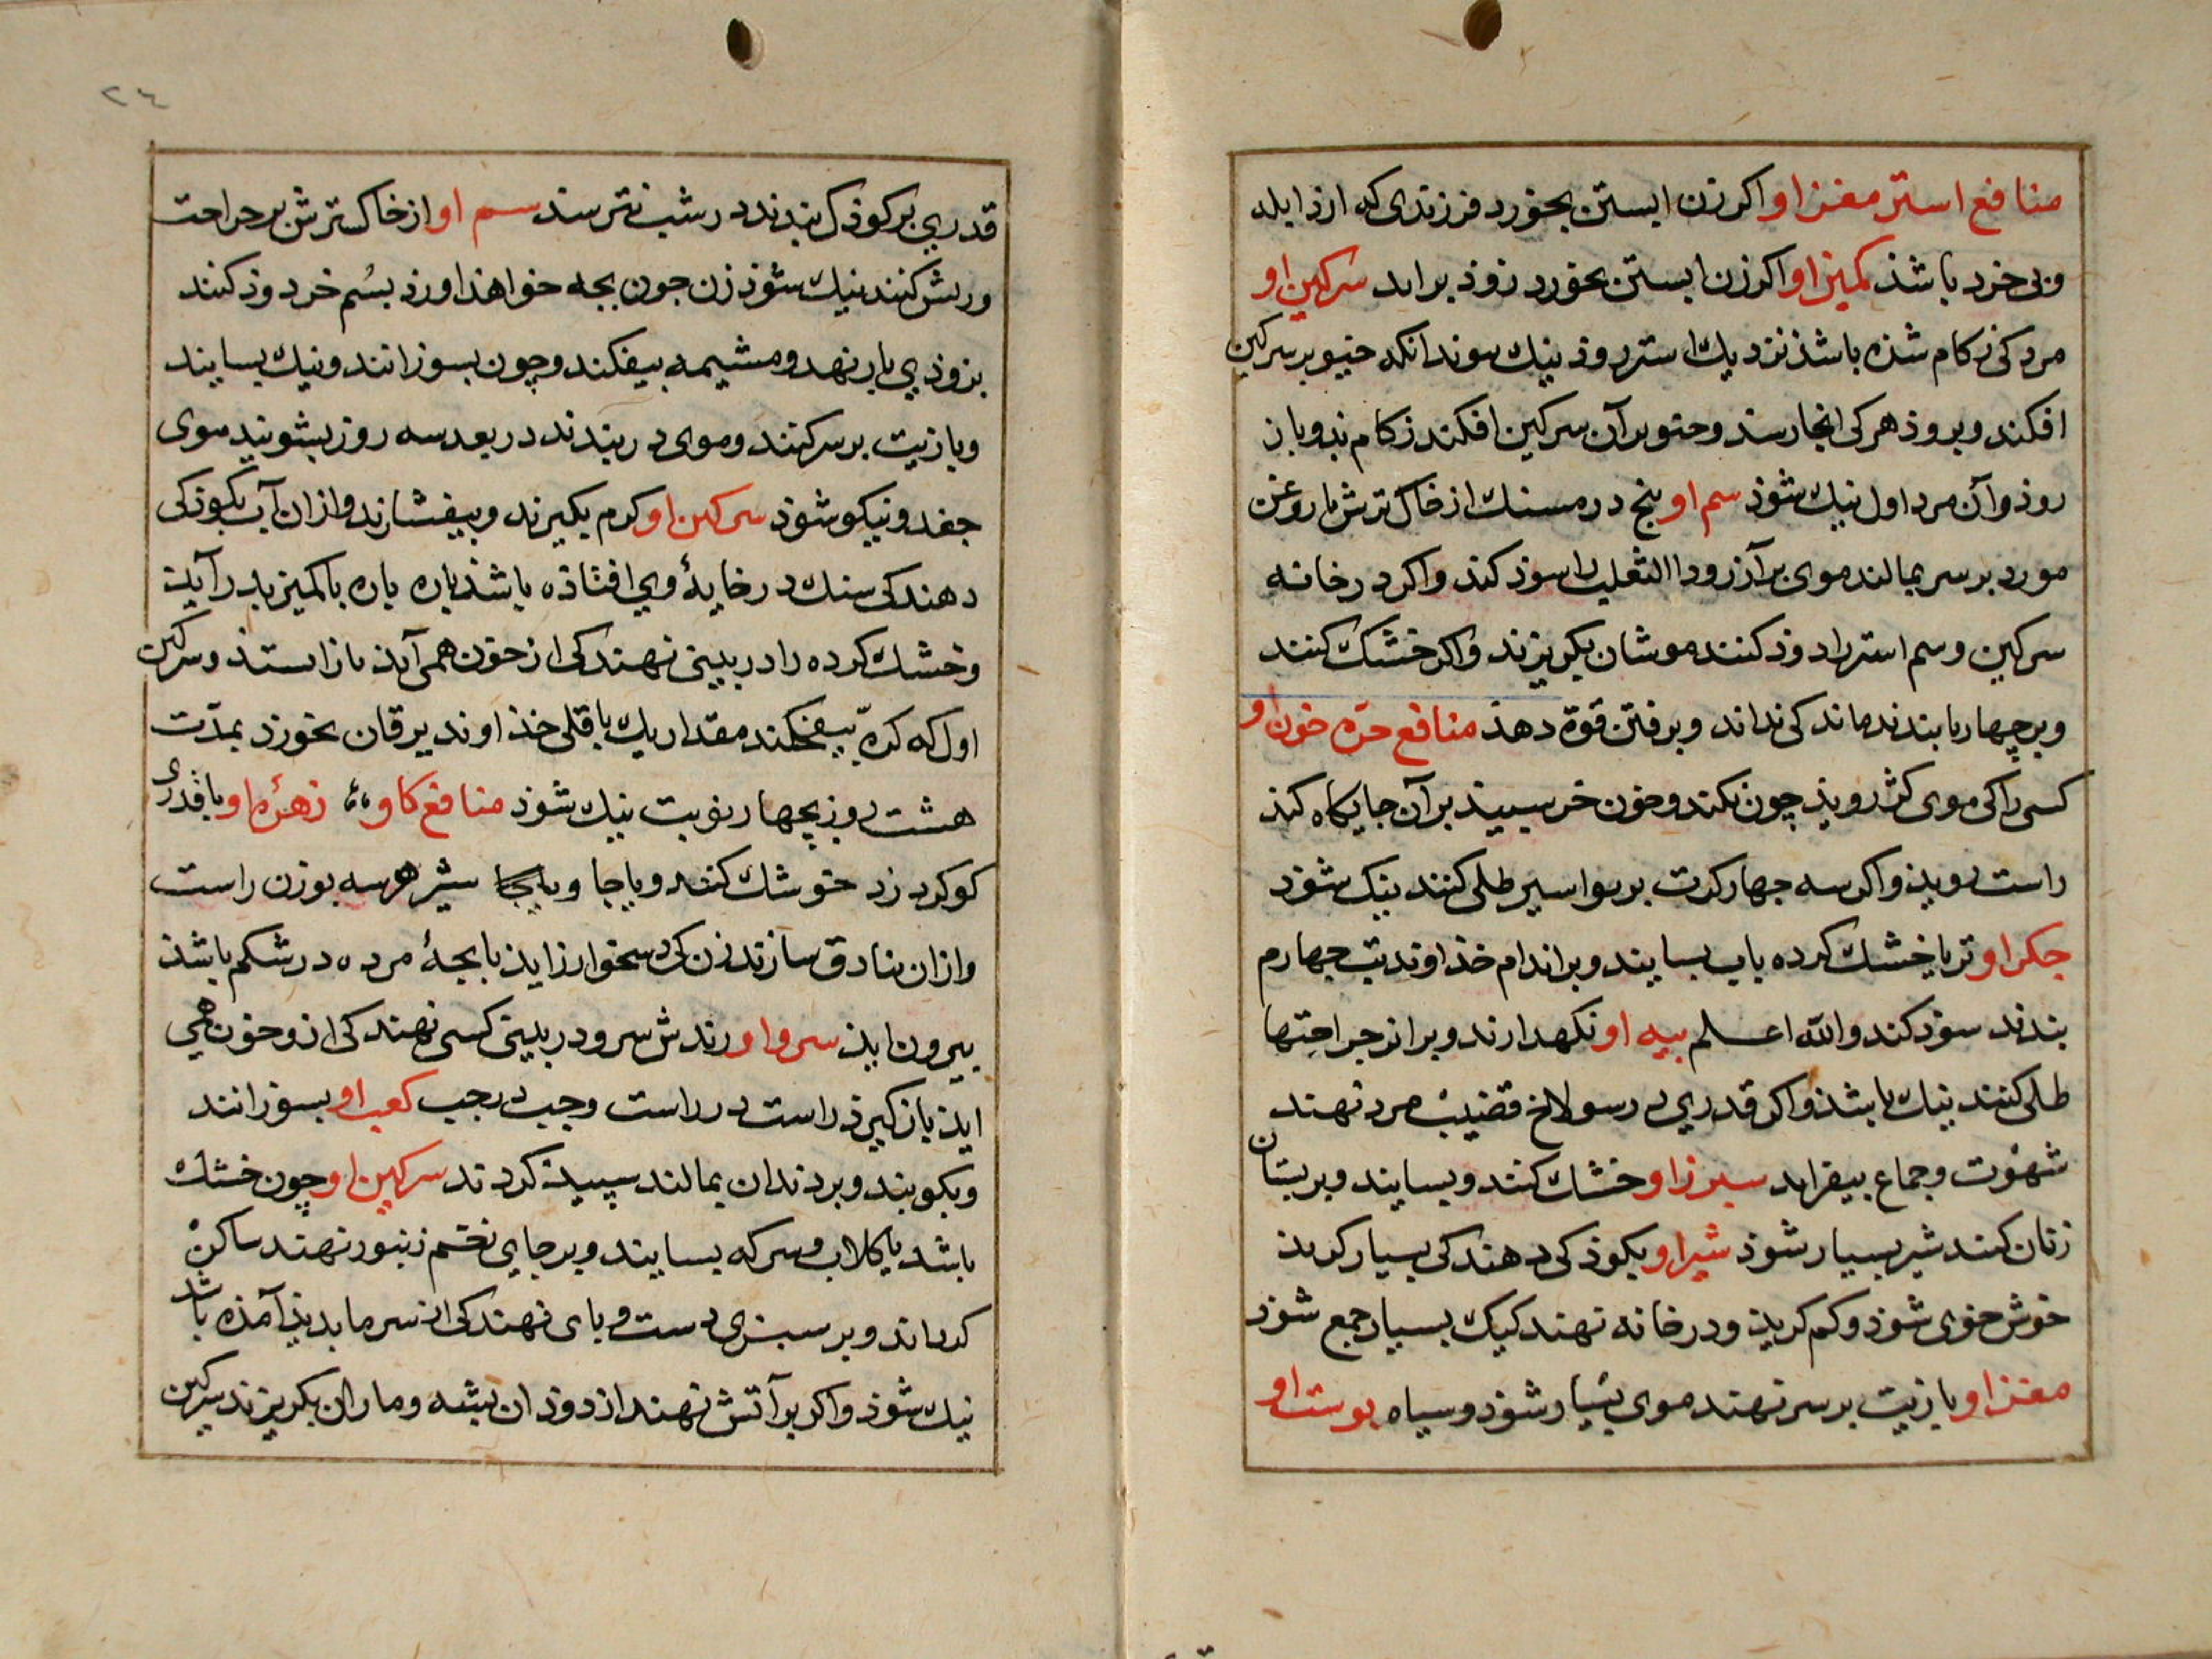 منافع استر مغز او اکر زن ابستن بخورد فرزندی که ازو ابله
وبی خرد باشذ کمیز او اکر زن ابستن بخورد زوذ براید سرکین او
مرد کی زکام شذه باشذ نزدیك استر روذ نیك سوند انکه خیو بر سرکین
افکند وبروذ هر کی انجا رسذ وخیو بر آن سرکین افکند زکام بذو باز
روذ وآن مرد اول نیك شوذ سم او پنج درمسنك از خاکسترش با روغن
مورد بر سر بمالند موی برآرذ وداالثعلب را سوذ کند واکر در خانه
سرکین وسم استر را دوذ کنند موشان بکریزند واکر خشك کنند
وبر چهارپا بندند ماند کی نداند وبر فتن قوة دهذ منافع خره خون او
کسی را کی موی کژ رویذ چون بکند وخون خر سپید بر آن جایکاه کند
راست رویذ واکر سه جهار کرت بر بواسیر طلی کنند نیك شوذ
جکر او تر یا خشك کرده باب بسایند وبر اندام خذاوند تب چهارم
بندند سوذ کند والله اعلم پیه او نکهدارند وبر اثر جراحتها
طلی کنند نیك باشذ واکر قدری در سولاخ قضیب مرد نهند
شهوت وجماع بیفزاید سپرز او خشك کنند وبسایند وبر پستان
زنان کنند شیر بسیار شوذ شیر او بکوذکی دهند کی بسیار کریذ
خوش خوی شوذ وکم کریذ ودر خانه نهند کیك بسیار جمع شوذ
مغز او با زیت بر سر نهند موی بسیار شوذ وسیاه پوست او
٢٤
قدری بر کوذك بندند در شب نترسذ سم او از خاکسترش بر جراحت
وریش کنند نیك شوذ زن چون بچه خواهذ اورذ بسم خر دوذ کنند
بزوذی بار نهد ومشیمه بیفکند وچون بسوزانند ونیك بسایند
وبا زیت بر سر کنند وموی در بندند در بعد سه روز بشویند موی
جعد ونیکو شوذ سرکین او کرم بکیرند وبیفشارند وازان آب بکوذکی
دهند کی سنك در خایۀ وی افتاذه باشذ پاره پاره با کمیز بدر آید
وخشك کرده را در بینی نهند کی از خون همی آیذ باز ایستذ وسرکین
اول که کره بیفکند مقدار یك باقلی خذاوند یرقان بخورذ بمدت
هشت روز بچهار نوبت نیك شوذ منافع کاو زهرۀ او با قدری
کوکرد زرد خوشك کنند وبا جا وبا شیر هر سه بوزن راست
وازان بنادق سازند زن کی دسخوار زایذ یا بچۀ مرده در شکم باشذ
بیرون ایذ سرو او رندش سرو در بینی کسی نهند کی ازو خون همی
ایذ باز کیرذ راست در راست وچب در چب کعب او بسوزانند
وبکوبند وبر دندان بمالند سپیذ کردند سرکین او چون خشك
باشد با کلاب وسرکه بسایند وبر جای زخم زنبور نهند ساکن
کرداند وبر سبزی دست وپای نهند کی از سرما بدیذ آمذه باشذ
نیك شوذ واکر بر آتش نهند از دوذ ان پشه وماران بکریزند سرکین